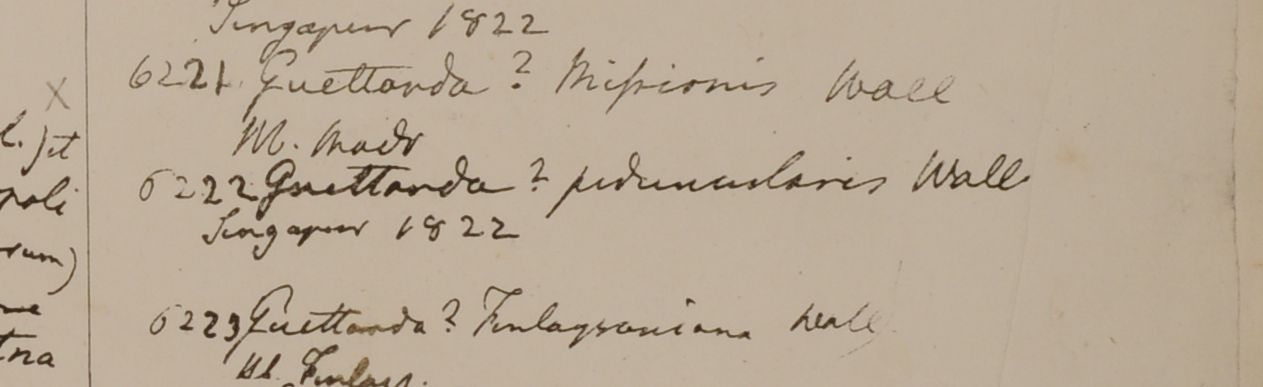 Singapur 1822
6221. Guettarda? Missionis Wall
Hb. Madr
6222 Guettarda? peduncularis Wall
Singapur 1822
6223 Guettarda? Finlaysoniana Wall
Hb. Finlays.
X
l. jit
poli
rum)
tna